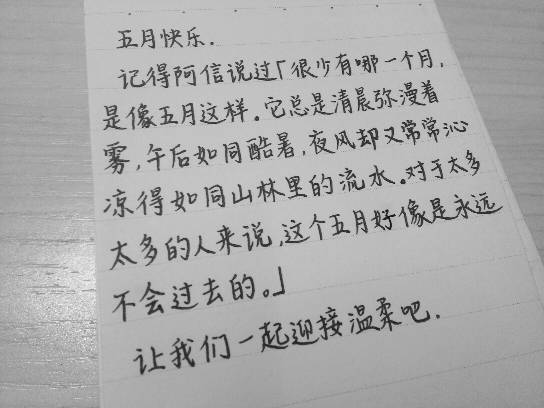 五月快乐.
记得阿信说过「很少有哪一个月,
是像五月这样。它总是清晨弥漫着
雾,午后如同酷暑,夜风却又常常沁
凉得如同山林里的流水。对于太多
太多的人来说,这个五月好像是永远
不会过去的。」
让我们一起迎接温柔吧.